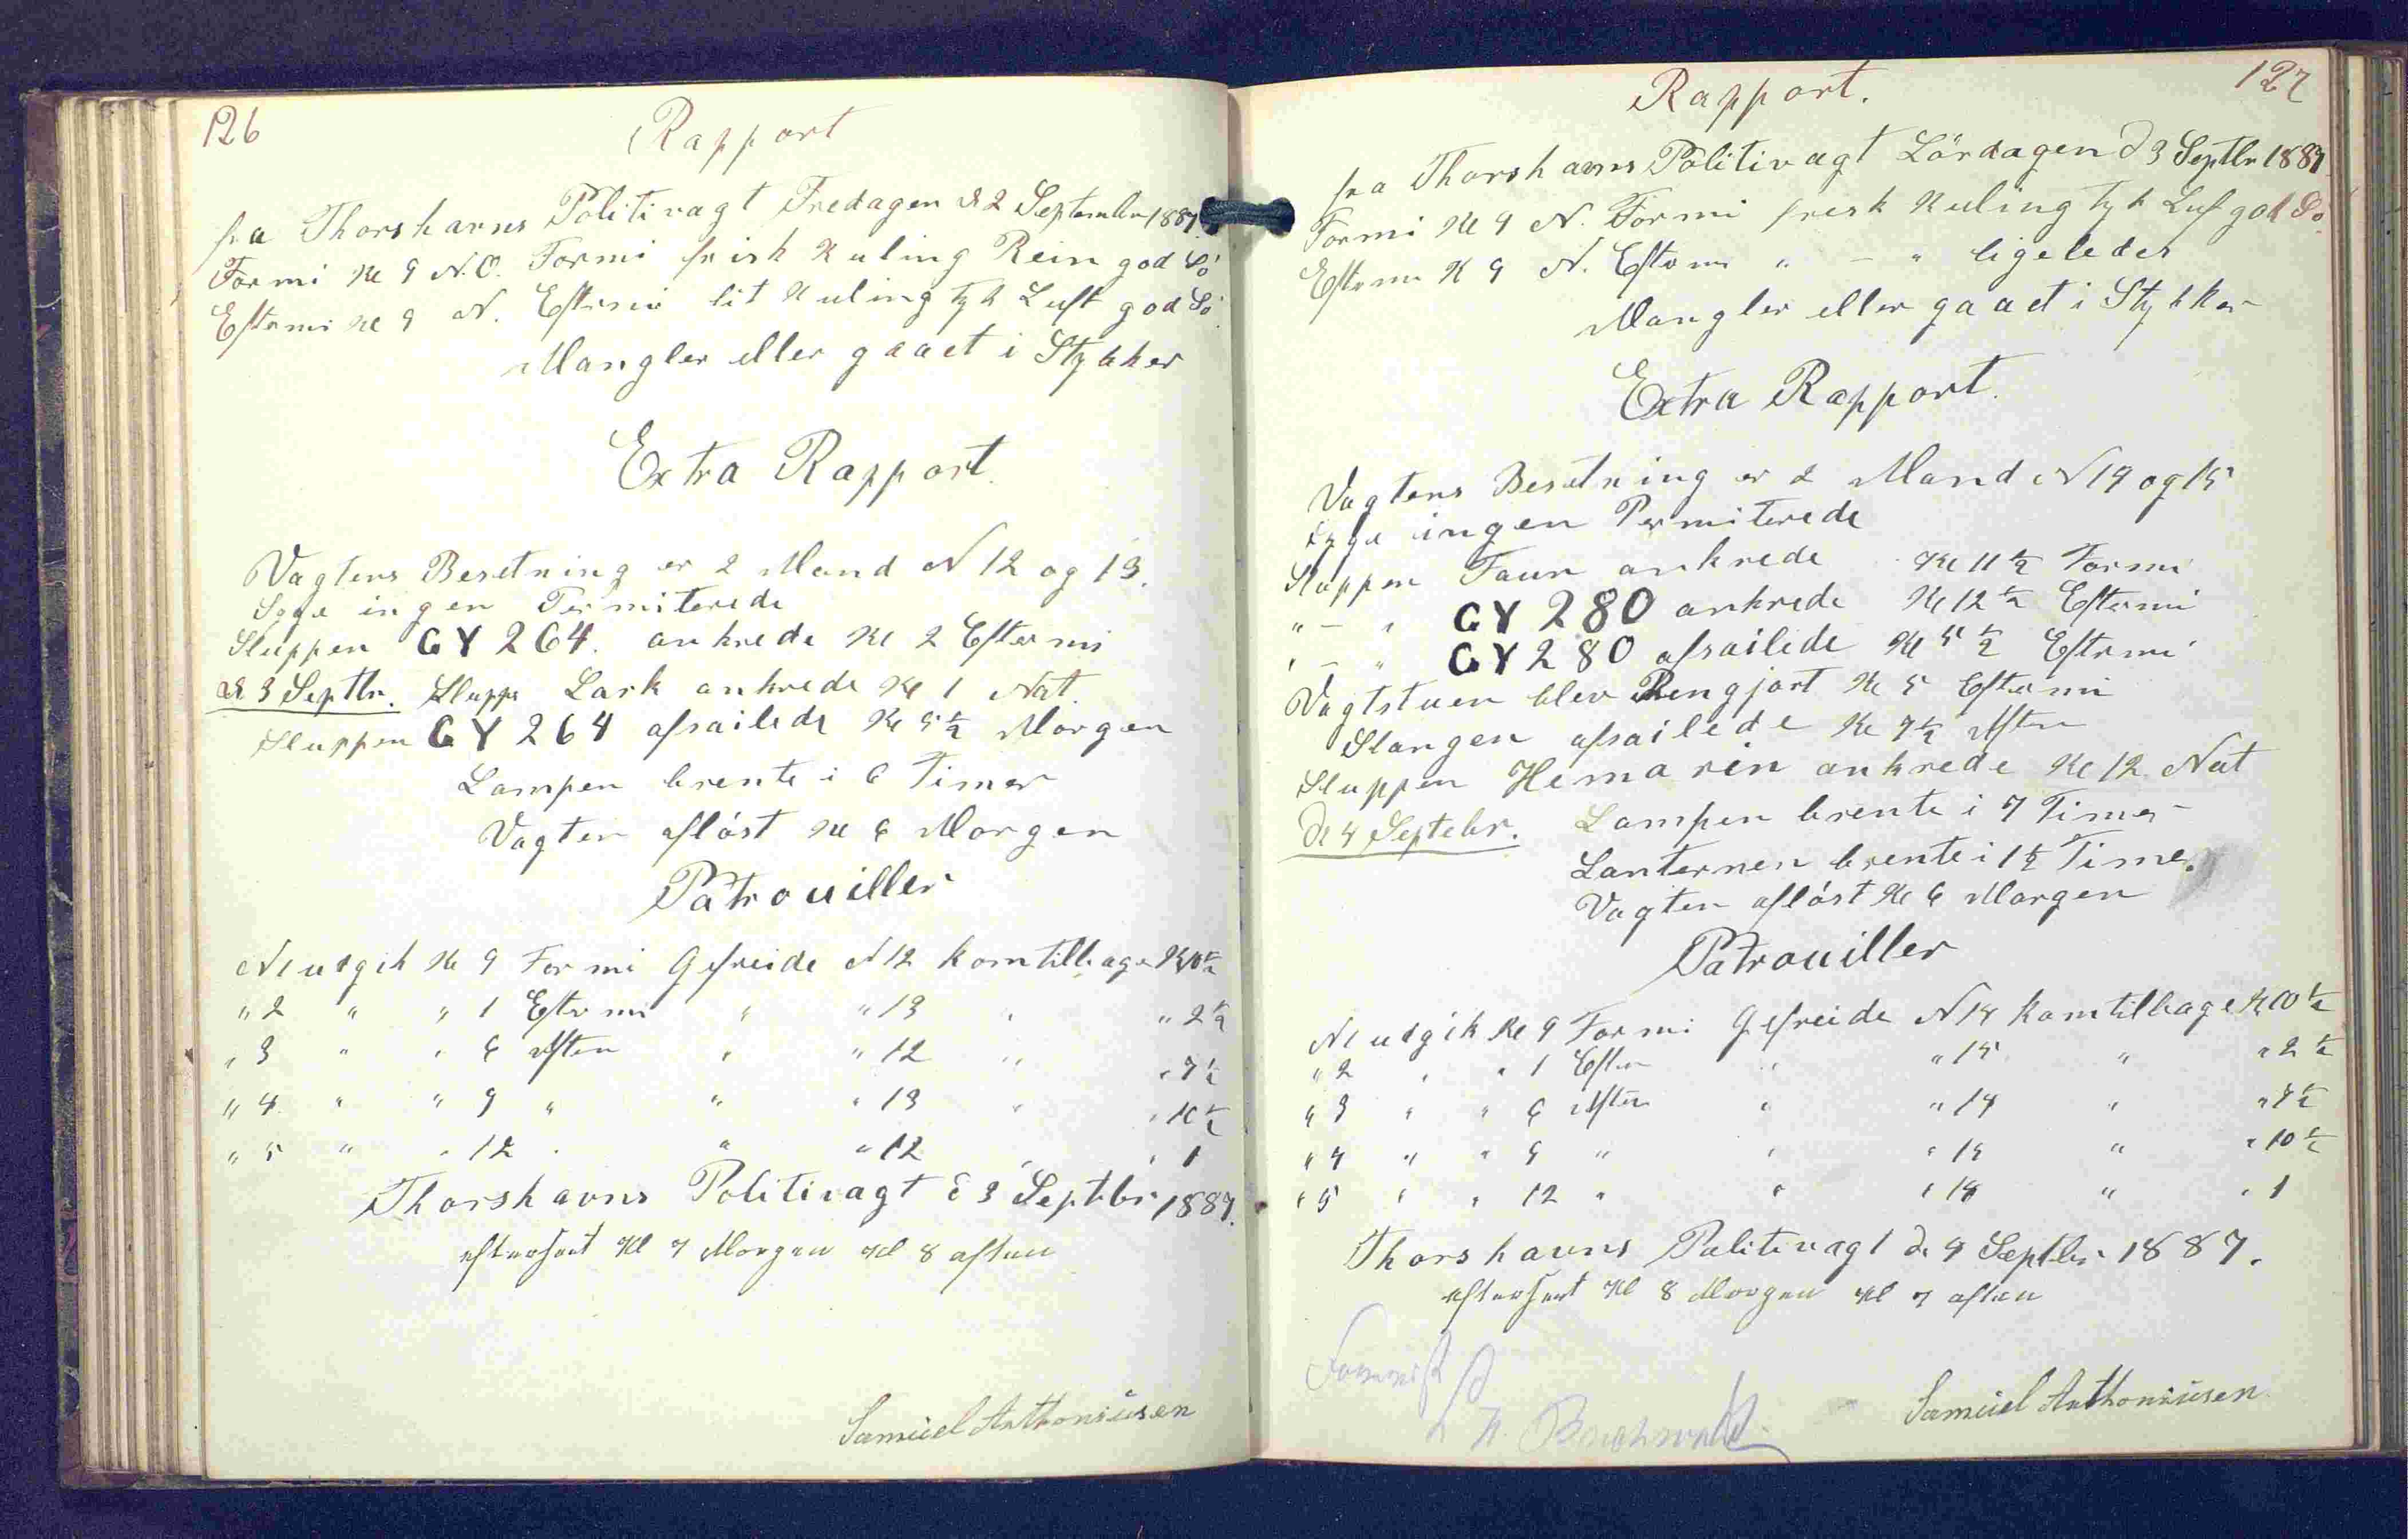 126
Rapport
fra Thorshavns Politivagt Fredagen d 2 September 1887.
Formi Kl 9 N.O. Formi frisk Kuling Rein god Sö
Eftermi Kl 9 N. Eftermi lit Kuling tyk Luft god Sö
Mangler eller gaaet i Stykker
Extra Rapport.
Vagtens Besetning er 2 Mand N 12 og 13.
Syge ingen Permiterede
Sluppen GY 264. ankrede Kl 2 Eftermi
d 3 Septbr. Slupp Lark ankrede Kl 1 Nat
Sluppen GY 264 afsailede Kl 5 1/2 Morgen
Lampen brente i 6 Timer
Vagten aflöst Kl 6 Morgen
Patrouiller
N 1 udgik Kl 9 Formi Gefreide N 12 kom tilbage Kl 10 1/2
" 2 " " 1 Eftermi " " 13 " " 2 1/2
" 3 " " 6 Aften " " 12 " " 7 1/2
" 4 " " 9 " " " 13 " " 10 1/2
" 5 " " 12 " " " 12 " " 1
Thorshavns Politivagt d 3 Septbr 1887.
efterseet Kl 7 Morgen Kl 8 aften
Samuel Anthoniusen
127
Rapport.
fra Thorshavns Politivagt Lördagen d 3 Septbr 1887
Formi Kl 9 N. Formi fresk Kuling tyk Luf god Sö.
Eftermi Kl 9 N. Eftermi " — " ligeledes
Mangler eller gaaet i Stykker
Extra Rapport.
Vagtens Besetning er 2 Mand N 14 og 15
Syge ingen Permiterede
Sluppen Faun ankrede Kl 11 1/2 Formi
" — " GY 280 ankrede Kl 12 1/2 Eftermi
" — " GY 280 afsailede Kl 5 1/2 Eftermi
Vagtstuen blev Rengjort Kl 5 Eftermi
Slangen afsailede Kl 7 1/2 Aften
Sluppen Hemarin ankrede Kl 12 Nat
d 4 Septebr. Lampen brente i 7 Timer
Lanternen brente i 1 1/2 Time.
Vagten aflöst Kl 6 Morgen
Patrouiller
N 1 udgik Kl 9 Formi Gefreide N 14 kom tilbage Kl 10 1/2
" 2 " " 1 Efter " " 15 " " 2 1/2
" 3 " " 6 Aften " " 14 " " 7 1/2
" 4 " " 9 " " " 15 " " 10 1/2
" 5 " " 12 " " " 14 " " 1
Thorshavns Politivagt d 4 Septbr 1887.
efterseet Kl 8 Morgen Kl 7 aften
Samuel Anthoniusen